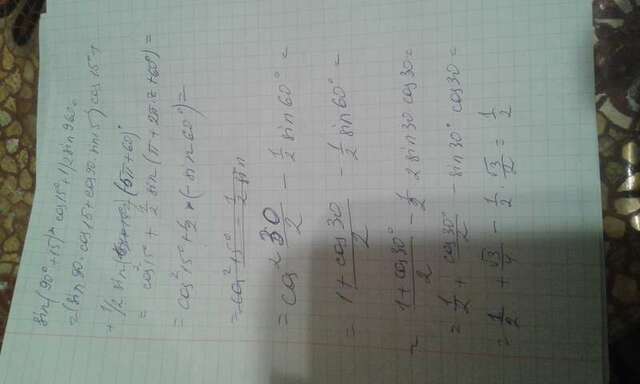 sin(90°+15)*cos15°+1/2sin960=
=(sin90·cos15+cos90·sin15)cos15°+
+1/2 sin (5π+60)°
= cos²15° + 1/2 sin (π+2π·2+60°)=
= cos²15°+1/2*(-sin60°)=
= cos² 30/2 - 1/2 sin60° =
= 1+cos30/2 - 1/2 sin60° =
= 1+cos30°/2 - 1/2 · 2sin30 cos30=
= 1/2 + cos30°/2 - sin30° cos30=
= 1/2 + √3/4 - 1/2 · √3/2 = 1/2